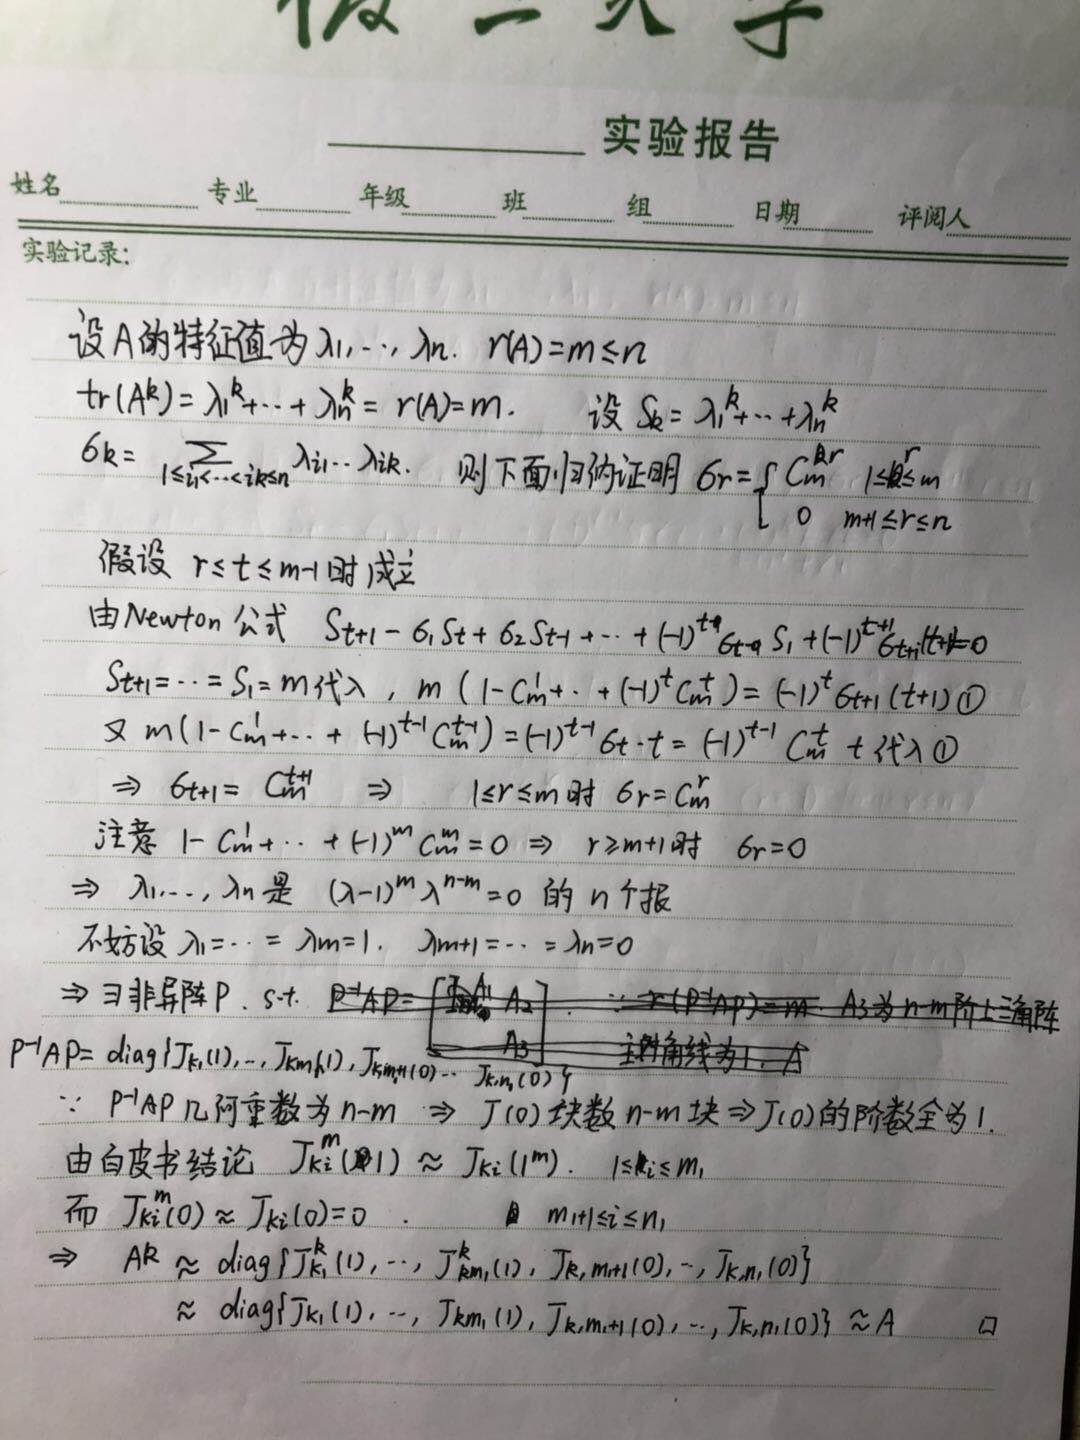 大学
实验报告
姓名 专业 年级 班 组 日期 评阅人
实验记录:
设A的特征值为λ1,…,λn. r(A)=m≤n
tr(A^k)=λ1^k+…+λn^k=r(A)=m. 设 Sk=λ1^k+…+λn^k
6k=∑_{1≤i1<…<ik≤n} λi1…λik. 则下面归纳证明 6r={ C_m^r 1≤r≤m
0 m+1≤r≤n
假设 r≤t≤m-1时成立
由Newton公式 St+1-61St+62St-1+…+(-1)^t 6t S1+(-1)^{t+1} 6t+1(t+1)=0
St+1=…=S1=m代入, m(1-C_m^1+…+(-1)^t C_m^t)=(-1)^t 6t+1(t+1)①
又 m(1-C_m^1+…+(-1)^{t-1} C_m^{t-1})=(-1)^{t-1} 6t·t=(-1)^{t-1} C_m^t t代入①
⇒ 6t+1=C_m^{t+1} ⇒ 1≤r≤m时 6r=C_m^r
注意 1-C_m^1+…+(-1)^m C_m^m=0 ⇒ r≥m+1时 6r=0
⇒ λ1,…,λn是 (λ-1)^m λ^{n-m}=0 的n个根
不妨设λ1=…=λm=1. λm+1=…=λn=0
⇒∃非异阵P. s.t. P^{-1}AP=[ A2 A3 ]. ∵ r(P^{-1}AP)=m. A3为n-m阶上三角阵
主对角线为1. A
P^{-1}AP=diag{Jk1(1),…,Jkm1(1),Jkm1+1(0)…Jkn1(0)}
∵ P^{-1}AP几何重数为n-m ⇒ J(0)块数n-m块⇒J(0)的阶数全为1.
由白皮书结论 J_{ki}^m(1)≈Jki(1^m). 1≤i≤m1
而 J_{ki}^m(0)≈Jki(0)=0. m1+1≤i≤n1
⇒ A^k≈diag{J_{k1}^k(1),…,J_{km1}^k(1),Jk,m1+1(0),…,Jk,n1(0)}
≈diag{Jk1(1),…,Jkm1(1),Jk,m1+1(0),…,Jk,n1(0)}≈A □